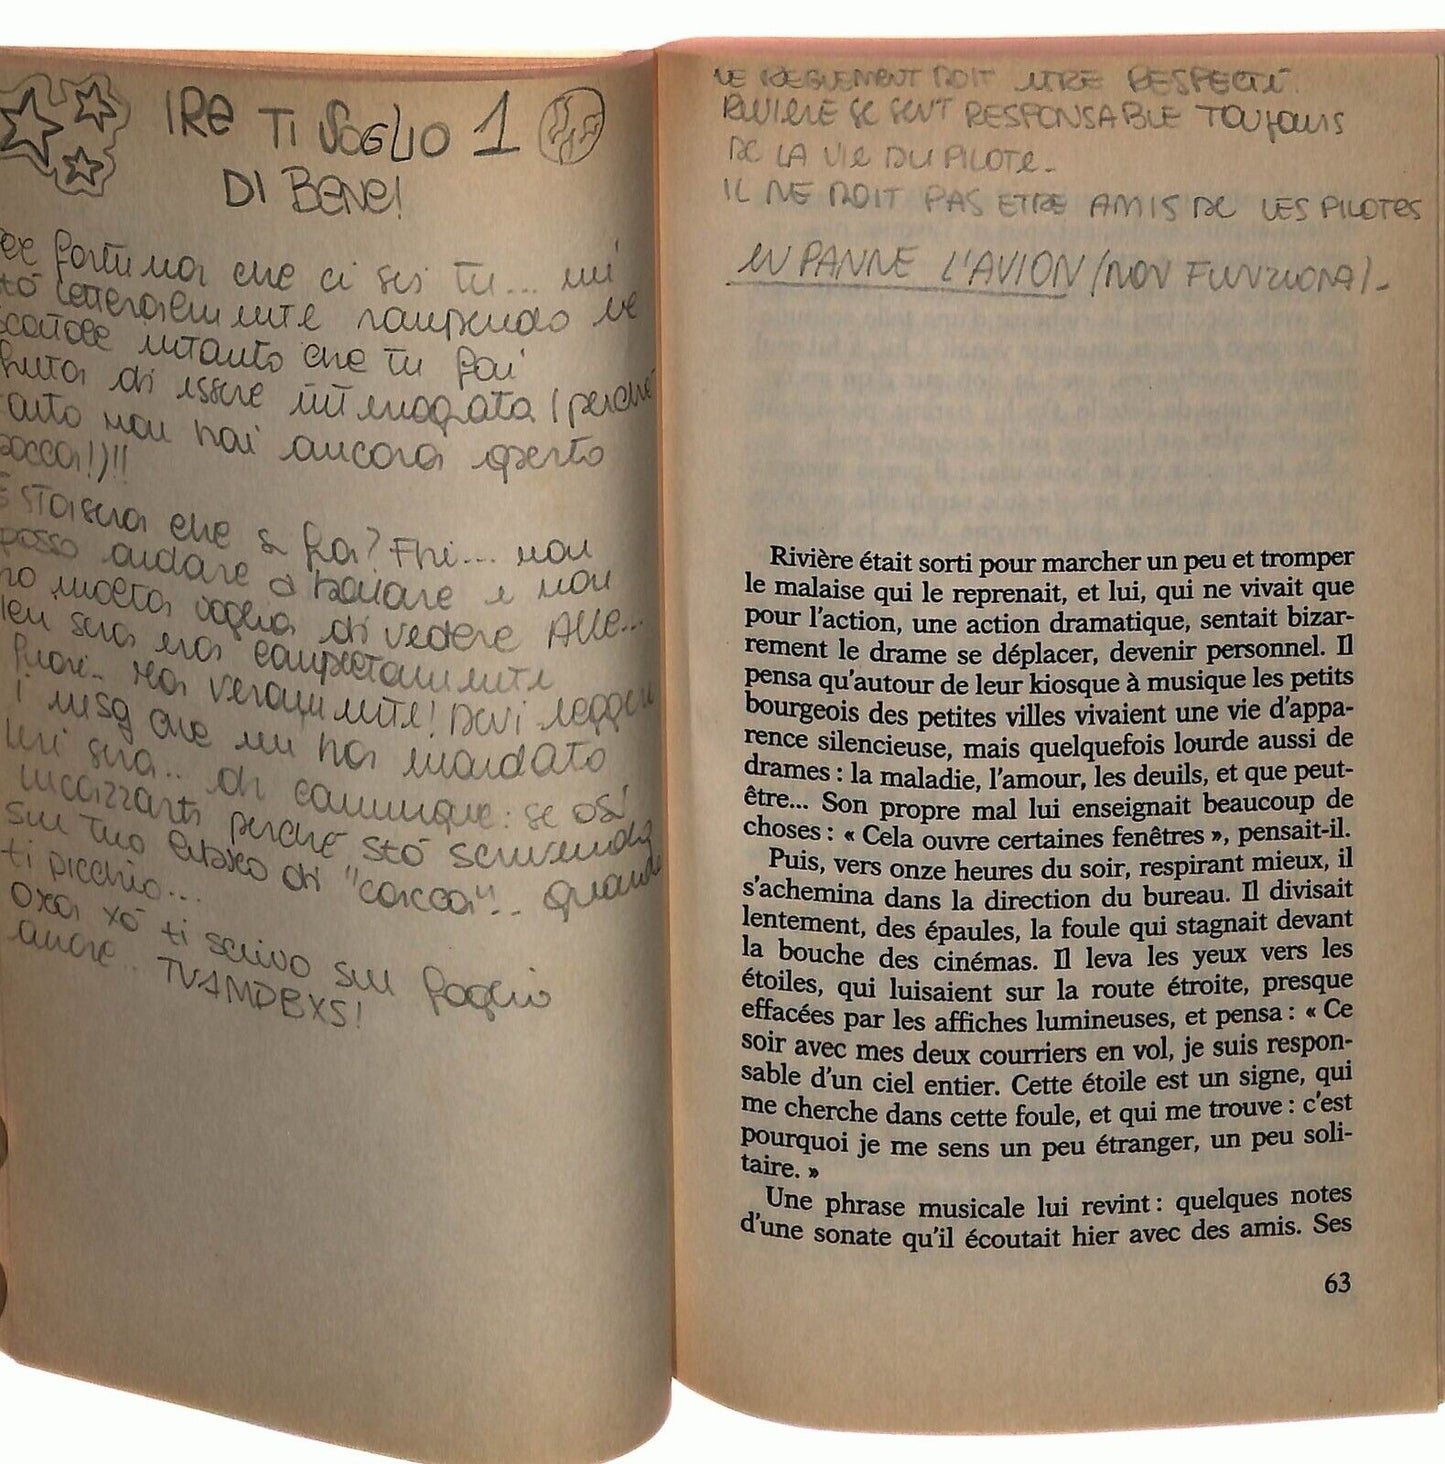 IRE TI VOGLIO 1
DI BENE!
fortuna che ci sei tu... mi
letteralmente rompendo le
scatole intanto che tu fai
finta di essere interrogata (perchè
tanto non hai ancora aperto
bocca!)!!
E stasera che si fa? Fhi... non
posso andare a ballare e non
ho molta voglia di vedere Alle...
Ieri sera era completamente
fuori.. Ma veramente! Devi leggere
i msg che mi ha mandato
ieri sera.. di comunque: se osi
incazzarti perché stò scrivendo
sul tuo libro di "cacca".. quando
ti picchio...
Ora xò ti scrivo sul foglio
anche.. TVAMDBXS!
LE REGLEMENT DOIT ETRE RESPECTÉ.
RIVIERE SE SENT RESPONSABLE TOUJOURS
DE LA VIE DU PILOTE.
IL NE DOIT PAS ETRE AMIS DE LES PILOTES
EN PANNE L'AVION (NON FUNZIONA).
Rivière était sorti pour marcher un peu et tromper
le malaise qui le reprenait, et lui, qui ne vivait que
pour l'action, une action dramatique, sentait bizar-
rement le drame se déplacer, devenir personnel. Il
pensa qu'autour de leur kiosque à musique les petits
bourgeois des petites villes vivaient une vie d'appa-
rence silencieuse, mais quelquefois lourde aussi de
drames : la maladie, l'amour, les deuils, et que peut-
être... Son propre mal lui enseignait beaucoup de
choses : « Cela ouvre certaines fenêtres », pensait-il.
Puis, vers onze heures du soir, respirant mieux, il
s'achemina dans la direction du bureau. Il divisait
lentement, des épaules, la foule qui stagnait devant
la bouche des cinémas. Il leva les yeux vers les
étoiles, qui luisaient sur la route étroite, presque
effacées par les affiches lumineuses, et pensa : « Ce
soir avec mes deux courriers en vol, je suis respon-
sable d'un ciel entier. Cette étoile est un signe, qui
me cherche dans cette foule, et qui me trouve : c'est
pourquoi je me sens un peu étranger, un peu soli-
taire. »
Une phrase musicale lui revint : quelques notes
d'une sonate qu'il écoutait hier avec des amis. Ses
63